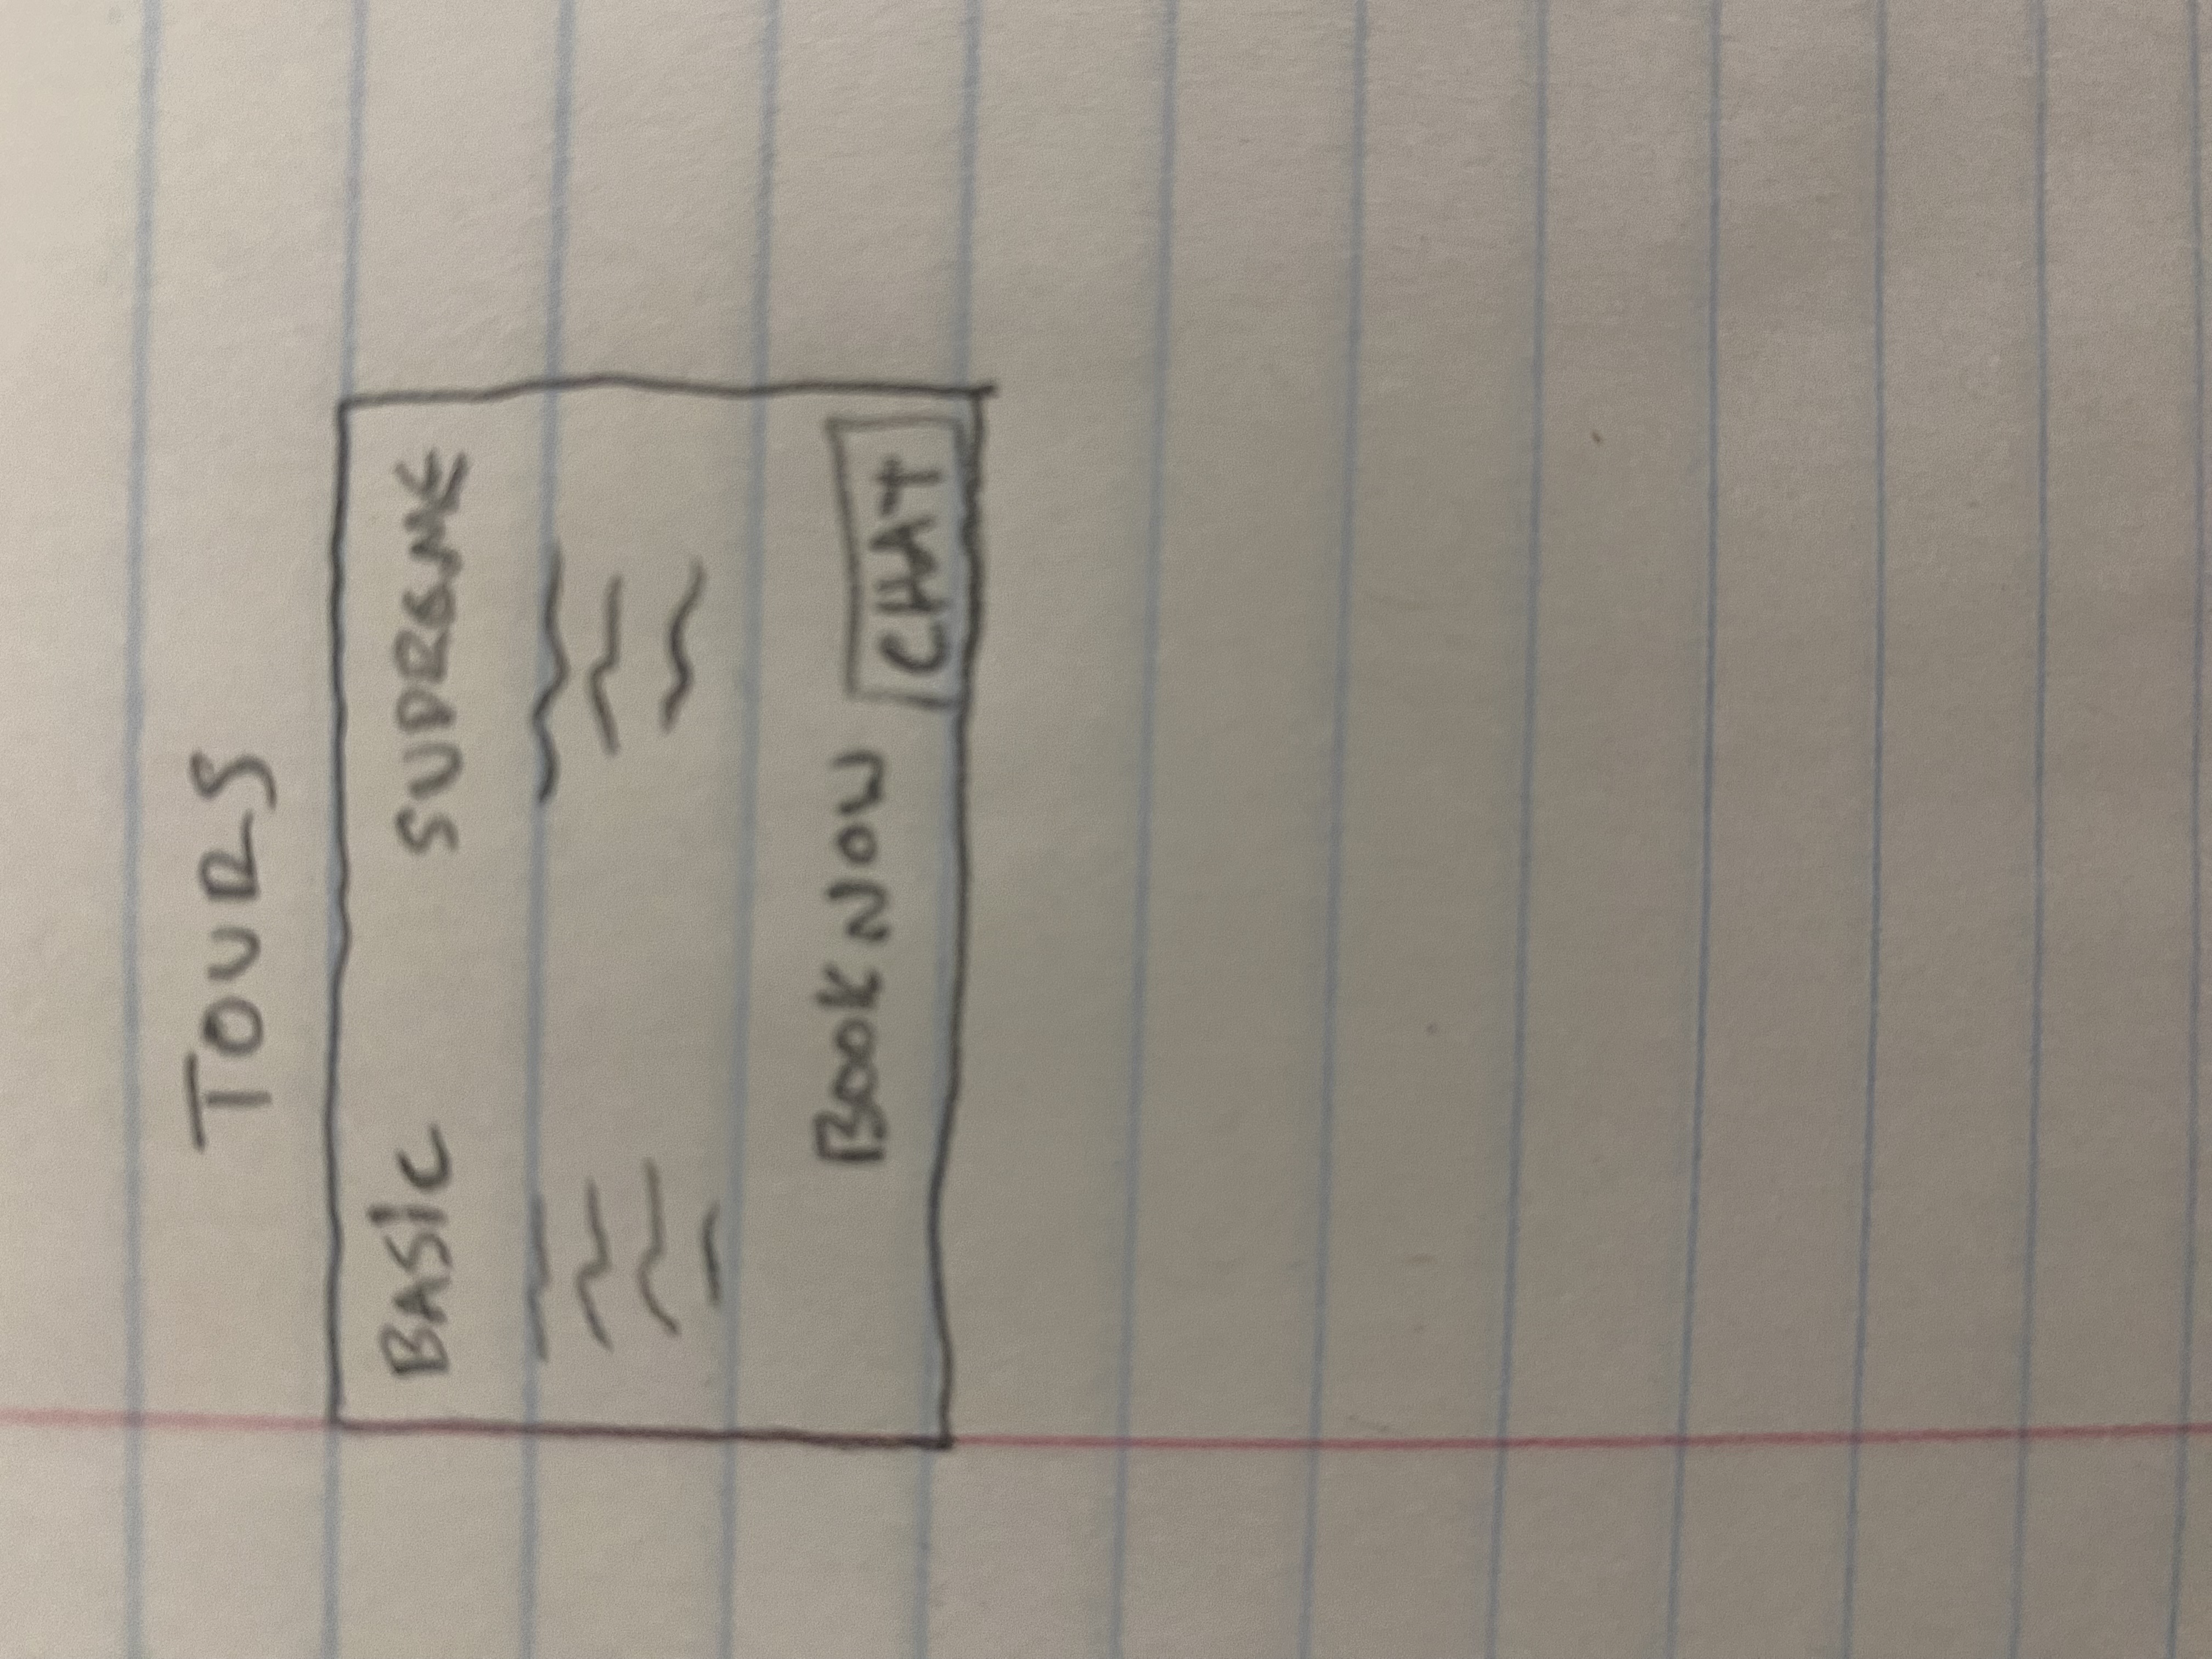 TOURS
BASiC SUPREME
BOOK NOW CHAT